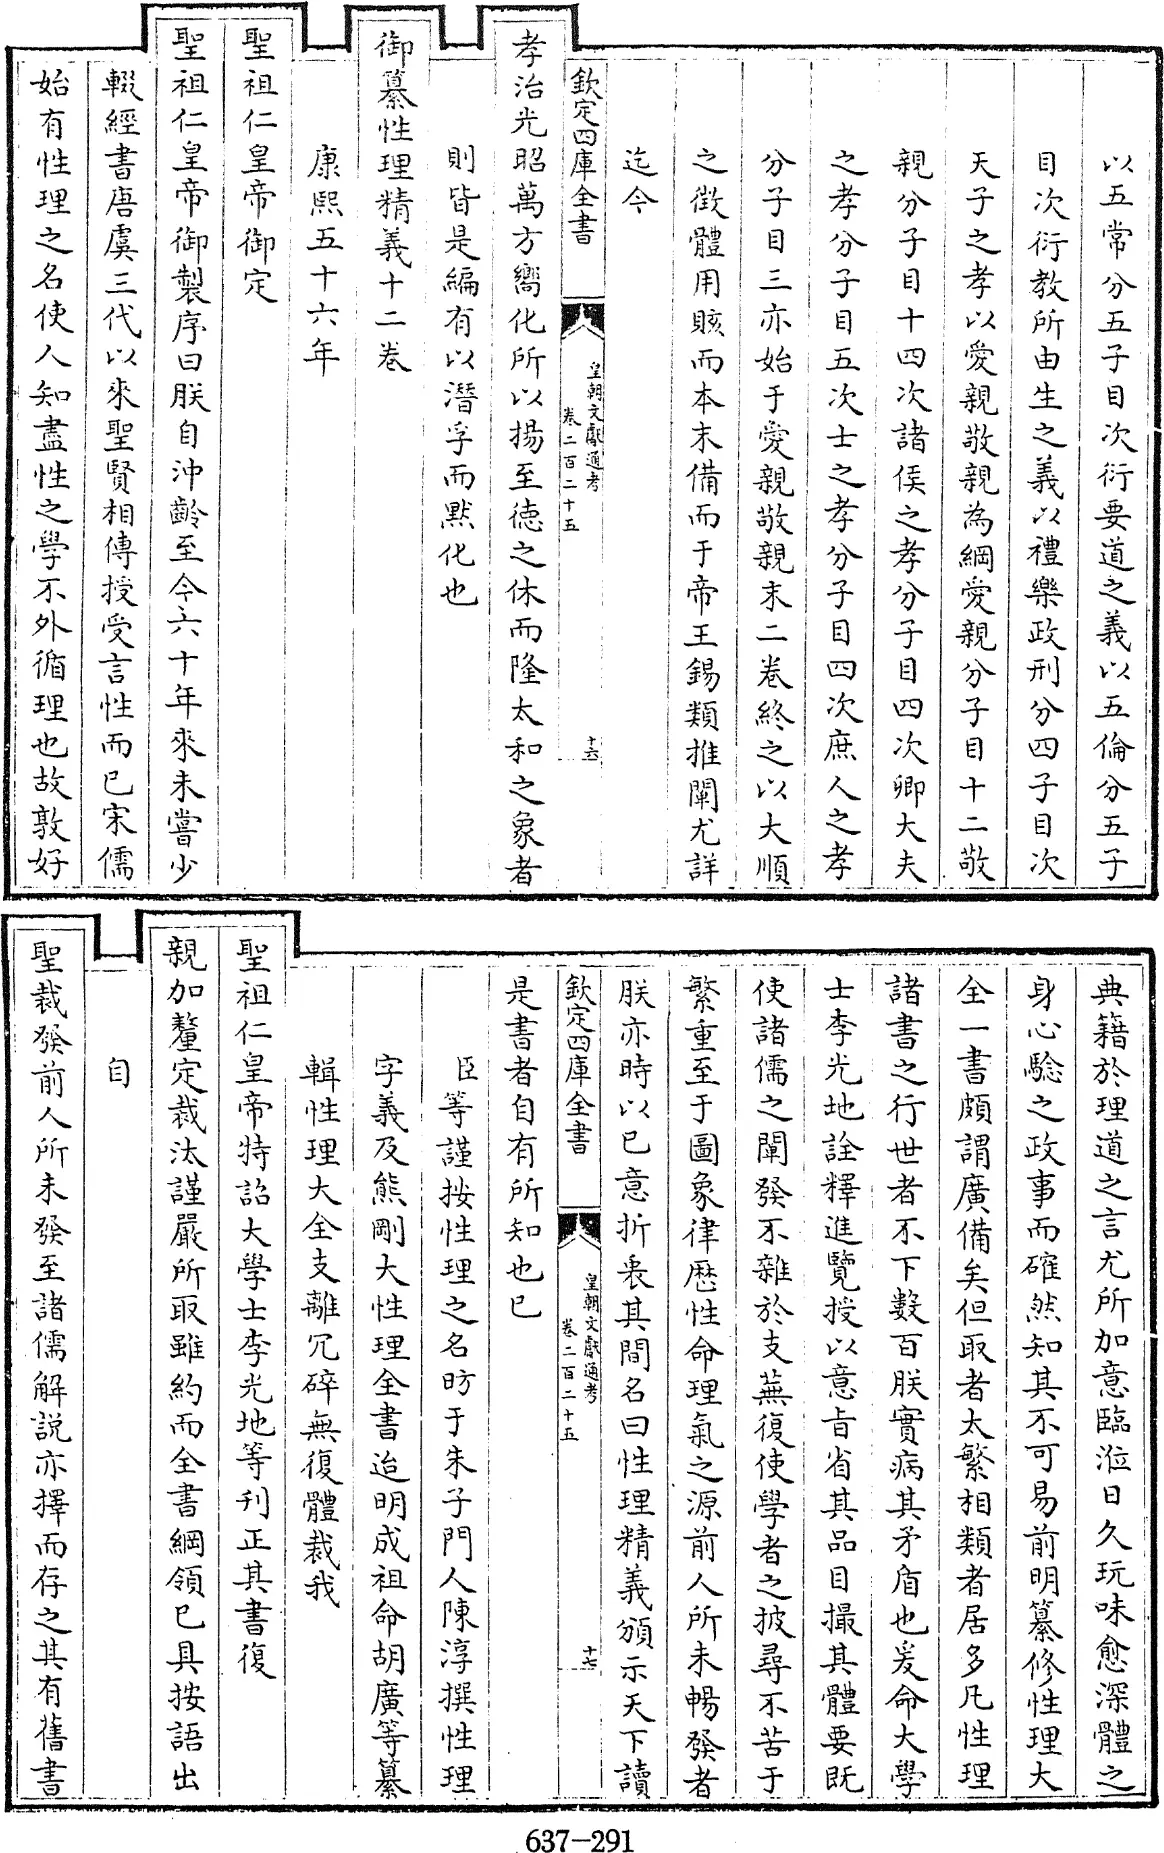 以五常分五子目次衍要道之義以五倫分五子
目次衍教所由生之義以禮樂政刑分四子目次
天子之孝以愛親敬親為綱愛親分子目十二敬
親分子目十四次諸侯之孝分子目四次卿大夫
之孝分子目五次士之孝分子目四次庶人之孝
分子目三亦始于愛親敬親末二卷終之以大順
之徴體用賅而本末備而于帝王錫類推闡尤詳
迄今
欽定四庫全書
皇朝文獻通考
卷二百二十五
十六
孝治光昭萬方嚮化所以揚至徳之休而隆太和之象者
則皆是編有以潛孚而默化也
御纂性理精義十二卷
康熙五十六年
聖祖仁皇帝御定
聖祖仁皇帝御製序曰朕自沖齡至今六十年來未嘗少
輟經書唐虞三代以來聖賢相傳授受言性而已宋儒
始有性理之名使人知盡性之學不外循理也故敦好
典籍於理道之言尤所加意臨涖日久玩味愈深體之
身心驗之政事而確然知其不可易前明纂修性理大
全一書頗謂廣備矣但取者太繁相類者居多凡性理
諸書之行世者不下數百朕實病其矛盾也爰命大學
士李光地詮釋進覽授以意旨省其品目撮其體要既
使諸儒之闡發不雜於支蕪復使學者之披尋不苦于
繁重至于圖象律厯性命理氣之源前人所未暢發者
朕亦時以已意折衷其間名曰性理精義頒示天下讀
欽定四庫全書
皇朝文獻通考
卷二百二十五
十七
是書者自有所知也已
臣等謹按性理之名昉于朱子門人陳淳撰性理
字義及熊剛大性理全書迨明成祖命胡廣等纂
輯性理大全支離冗碎無復體裁我
聖祖仁皇帝特詔大學士李光地等刊正其書復
親加釐定裁汰謹嚴所取雖約而全書綱領已具按語出
自
聖裁發前人所未發至諸儒解說亦擇而存之其有舊書
637-291